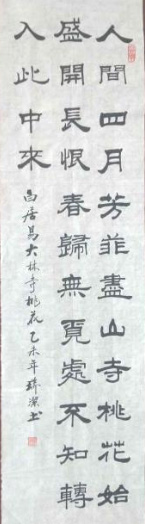 人間四月芳菲盡山寺桃花始
盛開長恨春歸無覓處不知轉
入此中來
白居易大林寺桃花乙未年